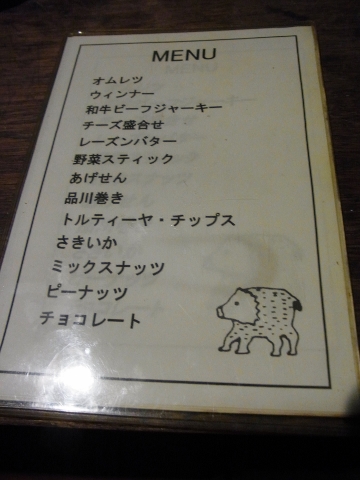 MENU
オムレツ
ウィンナー
和牛ビーフジャーキー
チーズ盛合せ
レーズンバター
野菜スティック
あげせん
品川巻き
トルティーヤ・チップス
さきいか
ミックスナッツ
ピーナッツ
チョコレート